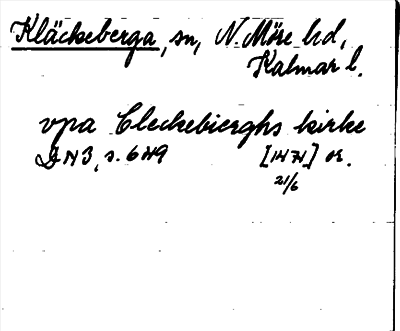 Kläckeberga, sn, N. Möre hd,
Kalmar l.
vpa Cleckebierghs kirke
DN 3, s. 649 [1471] or.
21/6